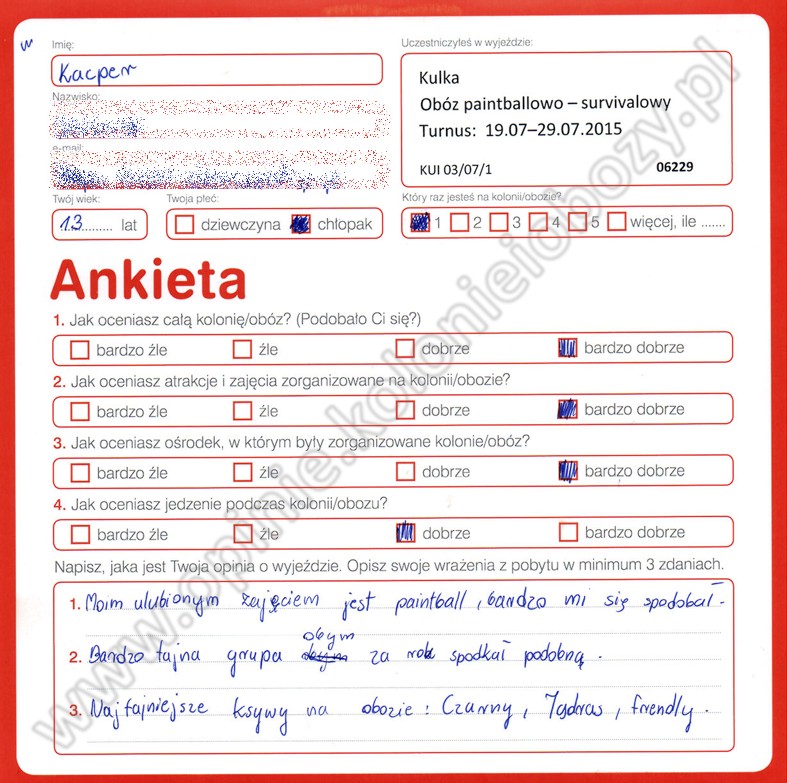 Imię:
Uczestniczyłeś w wyjeździe:
Kacper
Kulka
Obóz paintballowo – survivalowy
Turnus: 19.07–29.07.2015
KUI 03/07/1 06229
Nazwisko:
e-mail:
Twój wiek: Twoja płeć: Który raz jesteś na kolonii/obozie?
13......... lat dziewczyna chłopak 1 2 3 4 5 więcej, ile .......
Ankieta
1. Jak oceniasz całą kolonię/obóz? (Podobało Ci się?)
bardzo źle źle dobrze bardzo dobrze
2. Jak oceniasz atrakcje i zajęcia zorganizowane na kolonii/obozie?
bardzo źle źle dobrze bardzo dobrze
3. Jak oceniasz ośrodek, w którym były zorganizowane kolonie/obóz?
bardzo źle źle dobrze bardzo dobrze
4. Jak oceniasz jedzenie podczas kolonii/obozu?
bardzo źle źle dobrze bardzo dobrze
Napisz, jaka jest Twoja opinia o wyjeździe. Opisz swoje wrażenia z pobytu w minimum 3 zdaniach.
1. Moim ulubionym zajęciem jest paintball, bardzo mi się spodobał.
obym
2. Bardzo fajna grupa za rok spodkał podobną.
3. Najfajniejsze ksywy na obozie: Czarny, Jądras, friendly.
www.opinie.kolonieiobozy.pl